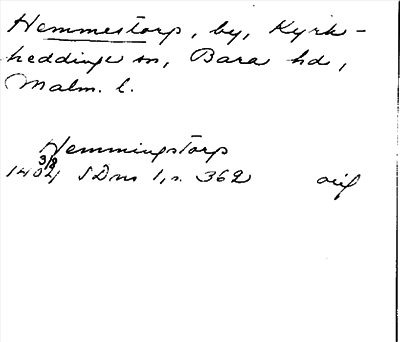 Hemmestorp, by, Kyrk-
heddinge sn, Bara hd,
Malm. l.
Hemmingstorp
3/8
1404 SDns 1, s. 362 orig